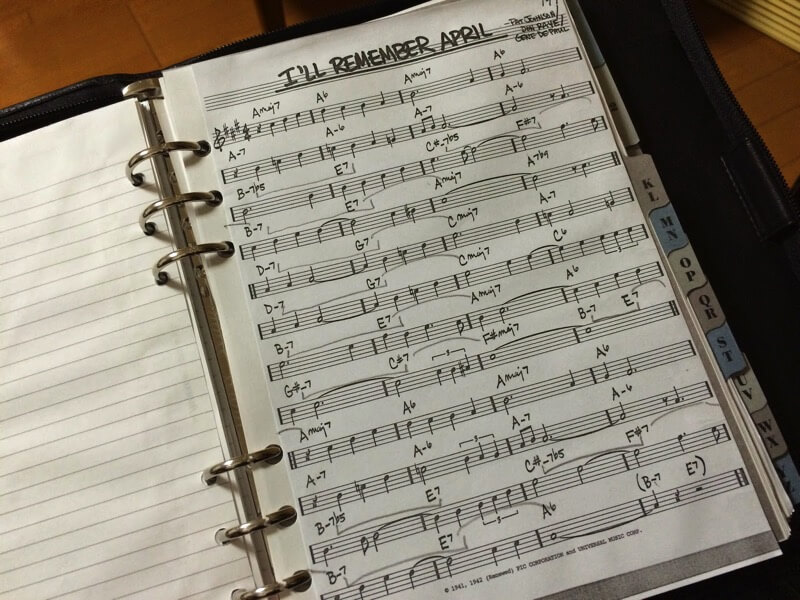 I'LL REMEMBER APRIL
-PAT JOHNSON/
DON RAYE/
GENE DE PAUL
Amaj7 A6 Amaj7 A6
A-7 A-6 A-7 C#-7b5 F#7
B-7b5 E7 Amaj7 A7b9
B-7 E7 Cmaj7 A-7
D-7 G7 Cmaj7 C6
D-7 G7 Amaj7 A6
B-7 E7 F#maj7 B-7 E7
G#-7 C#7 Amaj7 A6
Amaj7 A6 A-7 A-6
A-7 A-6 C#-7b5 F#7
B-7b5 E7 A6 (B-7 E7)
B-7 E7
© 1941, 1942 (Renewed) PIC CORPORATION and UNIVERSAL MUSIC CORP.
K
L
M
N
O P
Q R
S T
U V
W X